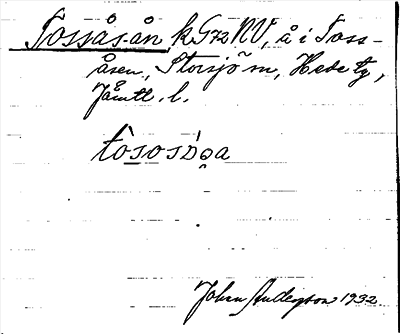 Tossås-ån k G72 NV, å i Toss-
åsen, Storsjö sn, Hede tg,
Jämtl. l.
tò̀sosòga
John Anderson 1932